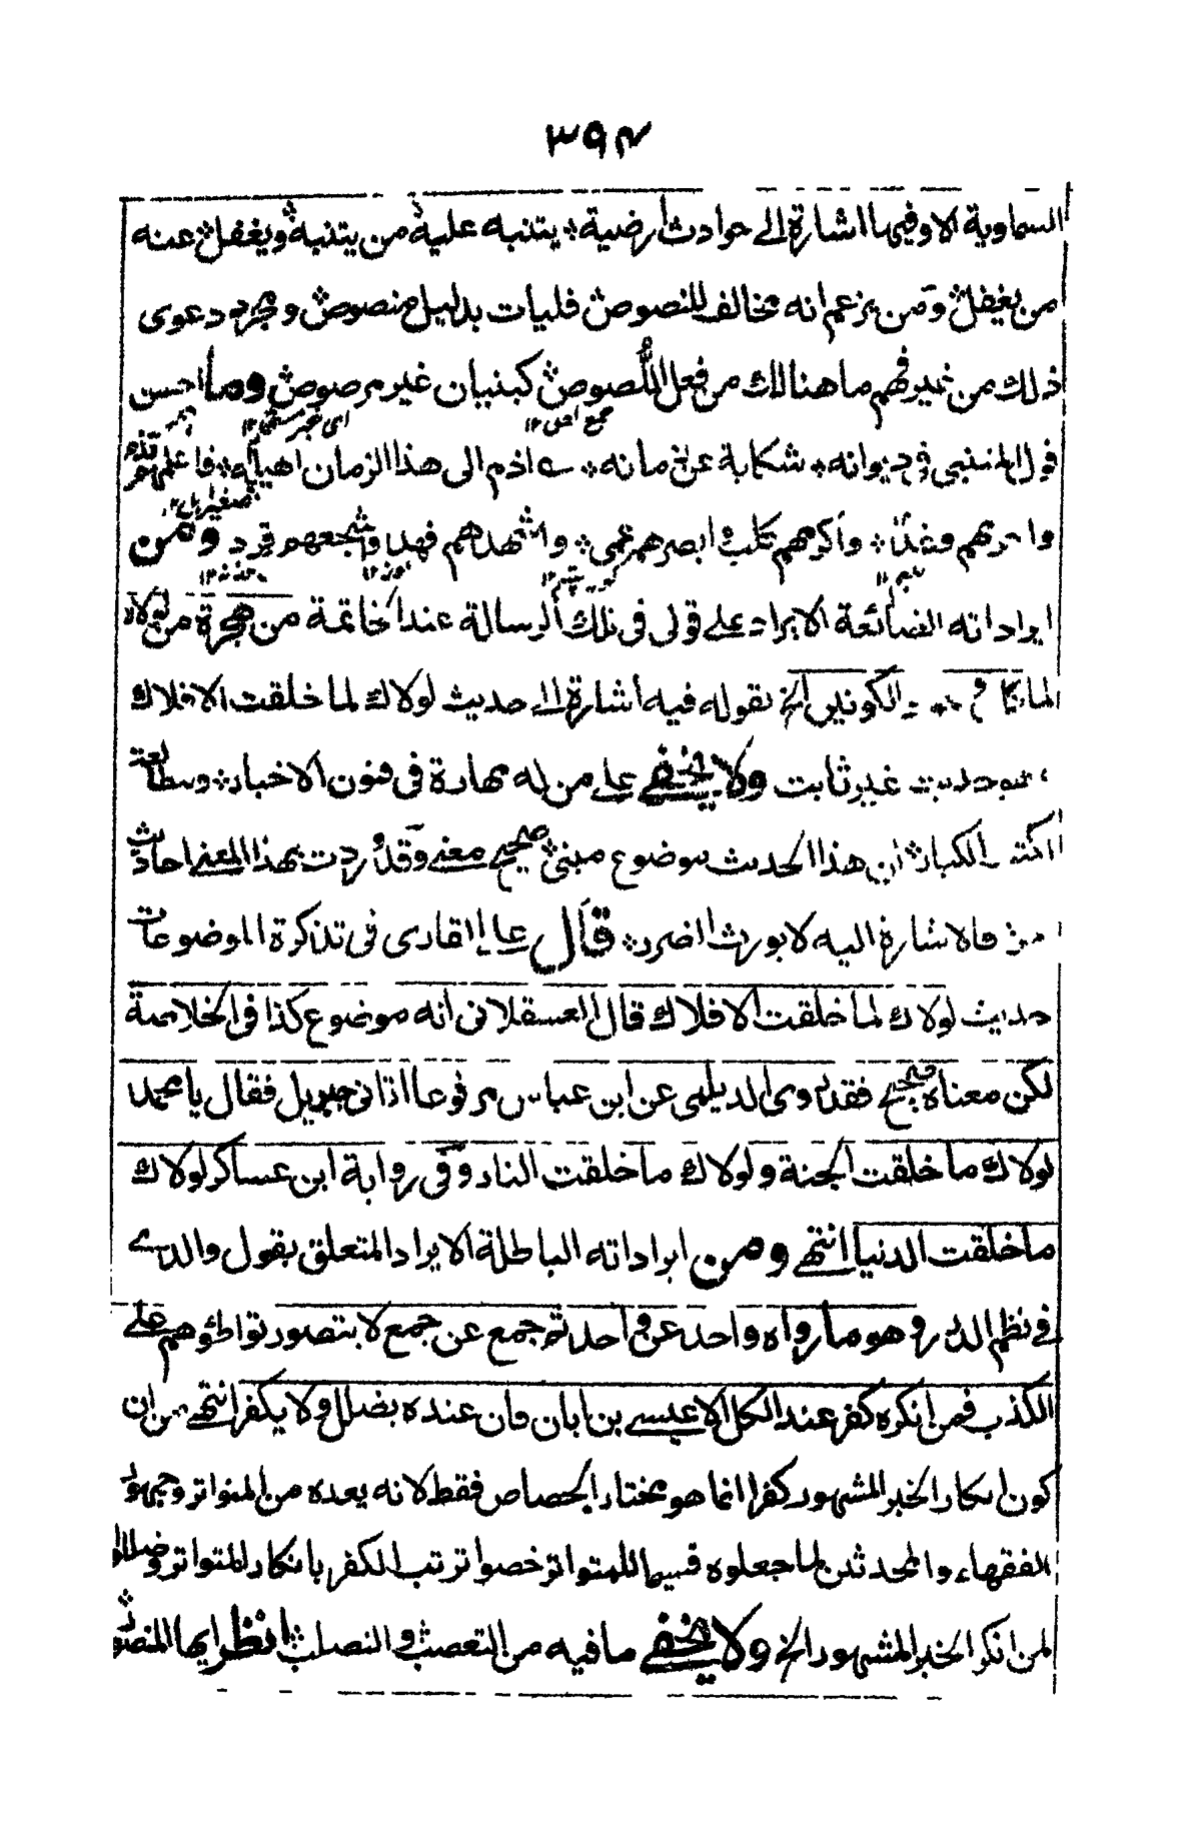 ٣٩٤
السماوية الا وفيها اشارة الى حوادث ارضية يتنبه عليه من يتنبه ويغفل عنه
من يغفل ومن يزعم انه مخالف للنصوص فليات بدليل منصوص ومجرد دعوى
ذلك من غير فهم ما هنالك من فعل اللصوص كبنيان غير مرصوص وما احسن
قول المتنبي في ديوانه شكاية عن زمانه ے اذم الى هذا الزمان اهيله فاعلمهم فدم
واحزمهم وغد واكرمهم كلب وابصرهم عمى واشهدهم فهد واشجعهم قرد ومن
ايراداته الضائعة الايراد على قولى فى تلك الرسالة عند خاتمة من هجرة من لولاه
لما الكونين الخ بقوله فيه اشارة الى حديث لولاك لما خلقت الافلاك
وهو حديث غير ثابت ولا يخفى على من له مهارة فى فنون الاخبار ومطالعة
الكتب الكبار ان هذا الحديث موضوع مبنى صحيح معنى وقد وردت بهذا المعنى احاديث
فالاشارة اليه لا يورث الضرر قال على القارى فى تذكرة الموضوعات
حديث لولاك لما خلقت الافلاك قال العسقلانى انه موضوع كذا فى الخلاصة
لكن معناه صحيح فقد روى الديلمى عن ابن عباس مرفوعا اتانى جبريل فقال يا محمد
لولاك ما خلقت الجنة ولولاك ما خلقت النار وفى رواية ابن عساكر لولاك
ما خلقت الدنيا انتهى ومن ايراداته الباطلة الايراد المتعلق بقول والدى
فى نظم الدرر وهو ما رواه واحد عن واحد ثم جمع عن جمع لا يتصور تواطؤهم على
الكذب فمن انكره كفر عند الكل الا عيسى بن ابان فان عنده يضلل ولا يكفر انتهى من ان
كون انكار الخبر المشهور كفرا انما هو مختار الجصاص فقط لانه يعده من المتواتر وجمهور
الفقهاء والمحدثين لما جعلوه قسيما للمتواتر خصوا ترتب الكفر بانكار المتواتر وضللوا
لمن انكر الخبر المشهور الخ ولا يخفى ما فيه من التعصب والتصلب انظر ايها المنصف